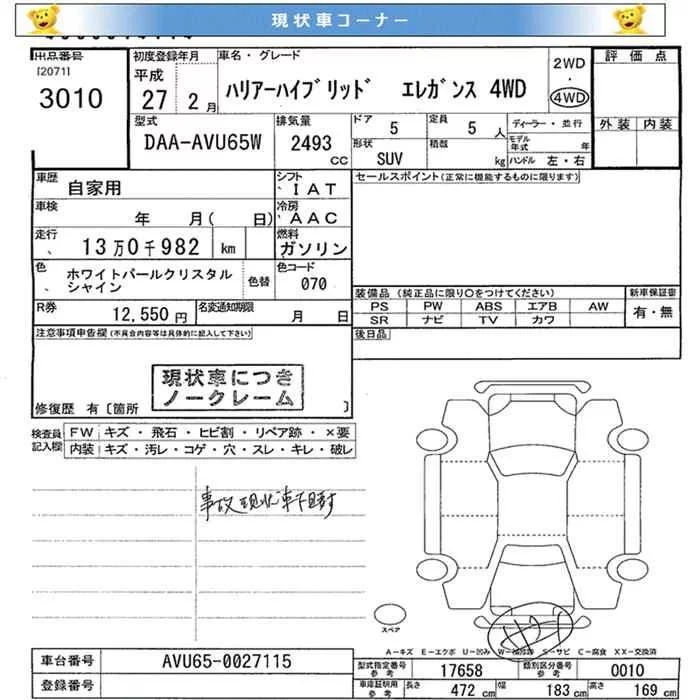 現状車コーナー
出品番号 初度登録年月 車名・グレード 2WD 評価点
[2071] 平成 ・
3010 27 2月 ハリアーハイブリッド エレガンス 4WD 4WD
型式 排気量 ドア 5 定員 5人 ディーラー・並行 外装 内装
DAA-AVU65W 2493 CC 形状 SUV 積載 kg モデル年式 年
ハンドル 左・右
車歴 自家用 シフト IAT セールスポイント(正常に機能するものに限ります)
車検 年 月( 日) 冷房 AAC
走行 13万0千982 km 燃料 ガソリン
色 ホワイトパールクリスタル 色替 色コード
シャイン 070
装備品(純正品に限り○をつけてください) 新車保証書
R券 12,550円 名変通知期限 月 日 PS PW ABS エアB AW 有・無
SR ナビ TV カワ
注意事項申告欄(不具合内容等は具体的に記入して下さい) 後日品
現状車につき
ノークレーム
修復歴 有〔箇所 〕
検査員 FW キズ・飛石・ヒビ割・リペア跡・×要
記入欄 内装 キズ・汚レ・コゲ・穴・スレ・キレ・破レ
事故現状車
スペア
A-キズ E-エクボ U-凹み S-サビ C-腐食 XX-交換済
車台番号 AVU65-0027115 型式指定番号 参考 17658 類別区分番号 参考 0010
登録番号 車庫証明用 参考 長さ 472 cm 幅 183 cm 高さ 169 cm